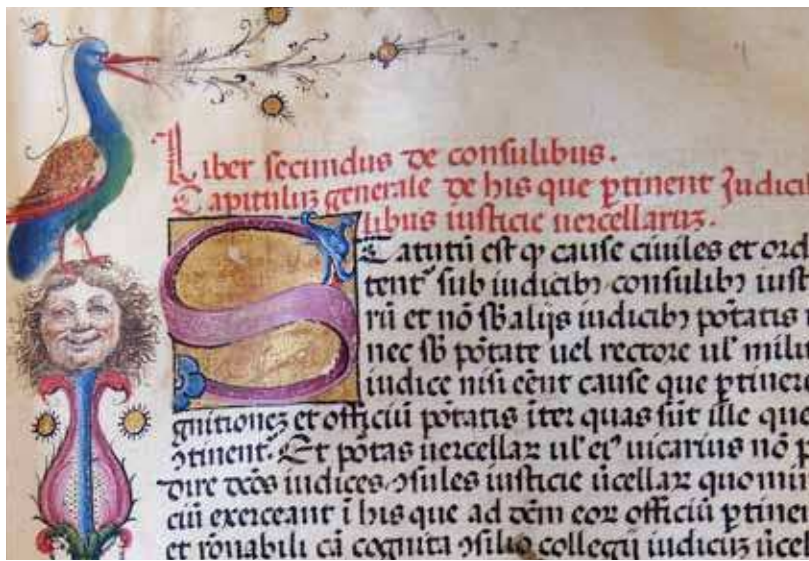 Liber secundus de consulibus.
Capitulū generale de his que ꝑtinent Judicib
libus iusticie uercellarū.
Statutū est ꝙ cause ciuiles et ord
tent᷑ sub iudicibꝫ consulibꝫ iust
rū et nō sb alijs iudicibꝫ pōtatis
nec sb pōtate uel rectore ul' mili
iudice nisi eēnt cause que ꝑtiner
gnitionez et officiū pōtatis īter quas sūt ille que
ꝯtinent᷑. Et pōtas uercellaꝝ ul' ei᷒ uicarius nō p
dire dcōs iudices ꝯsules iusticie ūcellaꝝ quomi
ciū exerceant ī his que ad dēm eoꝝ officiū ꝑtine
et rōnabili cā cognita ꝯsilio collegij iudicuꝫ ūcel